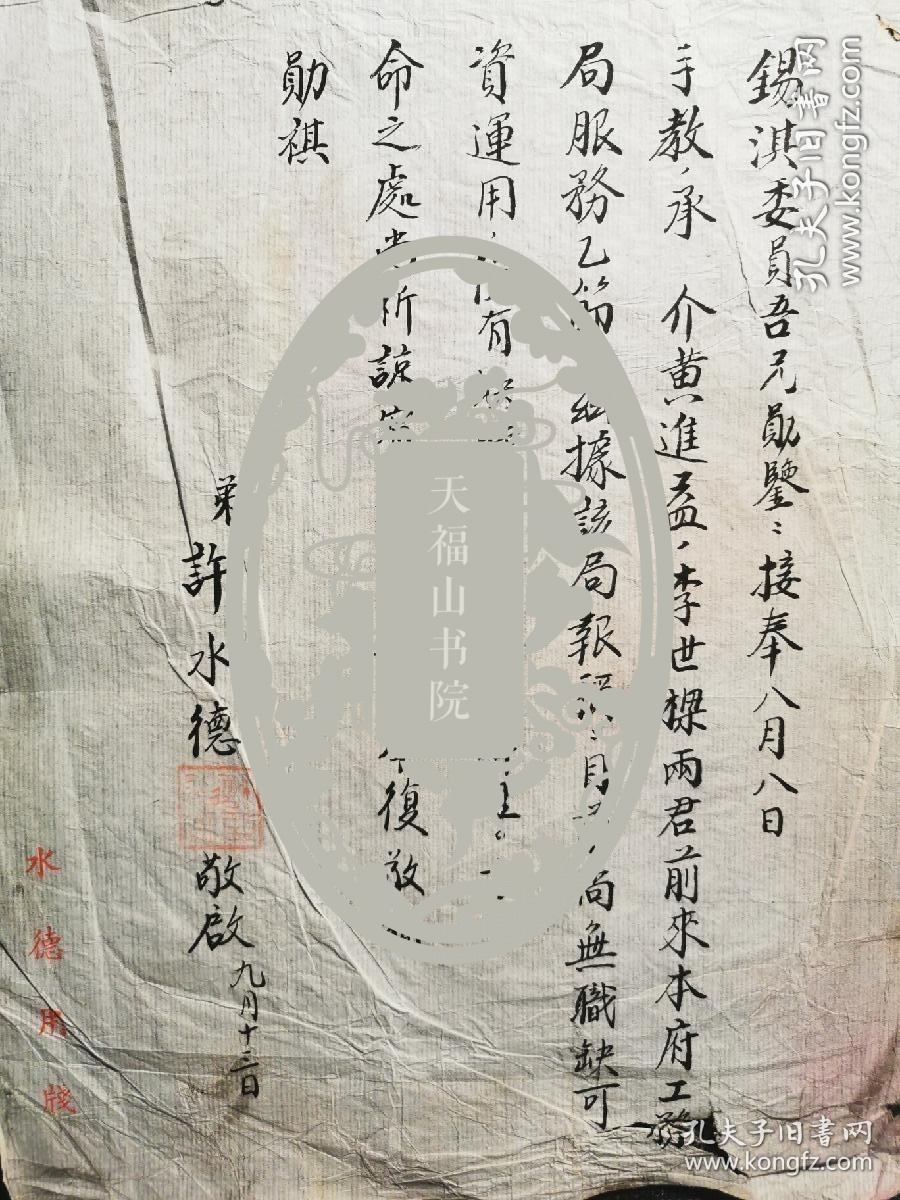 錫淇委員吾兄勛鑒：接奉八月八日
手教，承 介黃進益，李世樑兩君前來本府工務
局服務乙節 經據該局報 目 ，尚無職缺可
資運用， 有
命之處尚祈諒 復敬
勛祺
弟 許水德 敬啟 九月十三日
水德用牋
天福山书院
孔夫子旧書网
www.kongfz.com
孔夫子旧書网
www.kongfz.com